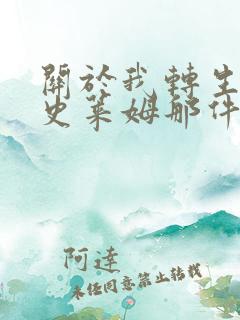 關於我轉生
史萊姆那件
阿達
未经同意禁止转载